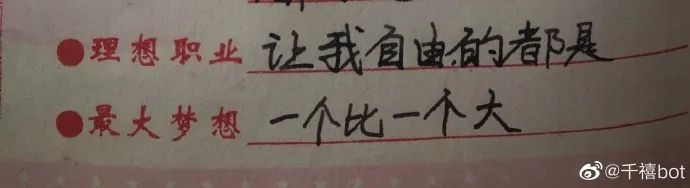 ●理想职业 让我自由的都是
●最大梦想 一个比一个大
@千禧bot